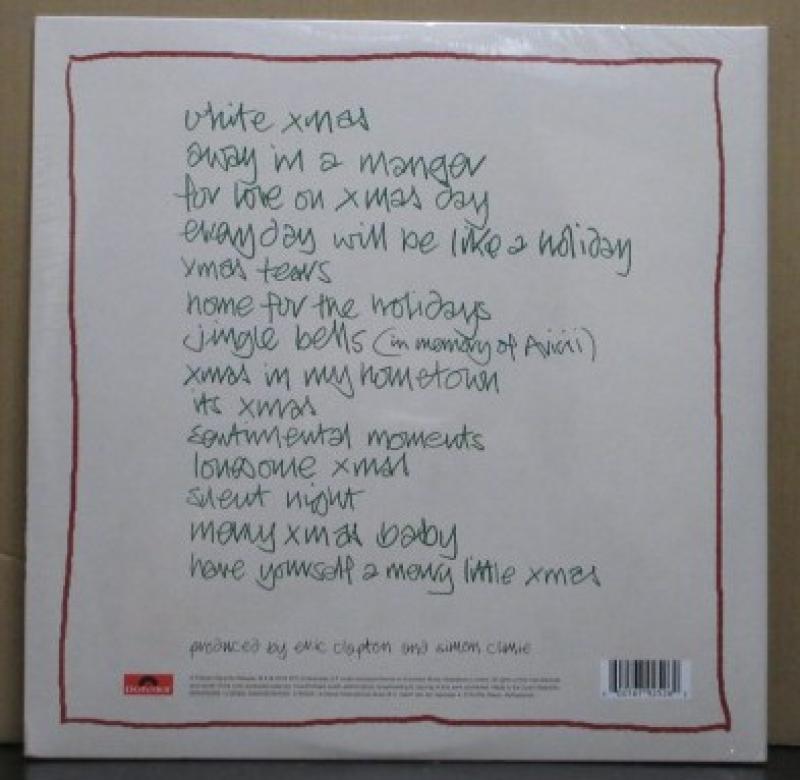 white xmas
away in a manger
for love on xmas day
everyday will be like a holiday
xmas tears
home for the holidays
jingle bells (in memory of Avicii)
xmas in my hometown
its xmas
sentimental moments
lonesome xmas
silent night
merry xmas baby
have yourself a merry little xmas
produced by eric clapton and simon climie
Polydor